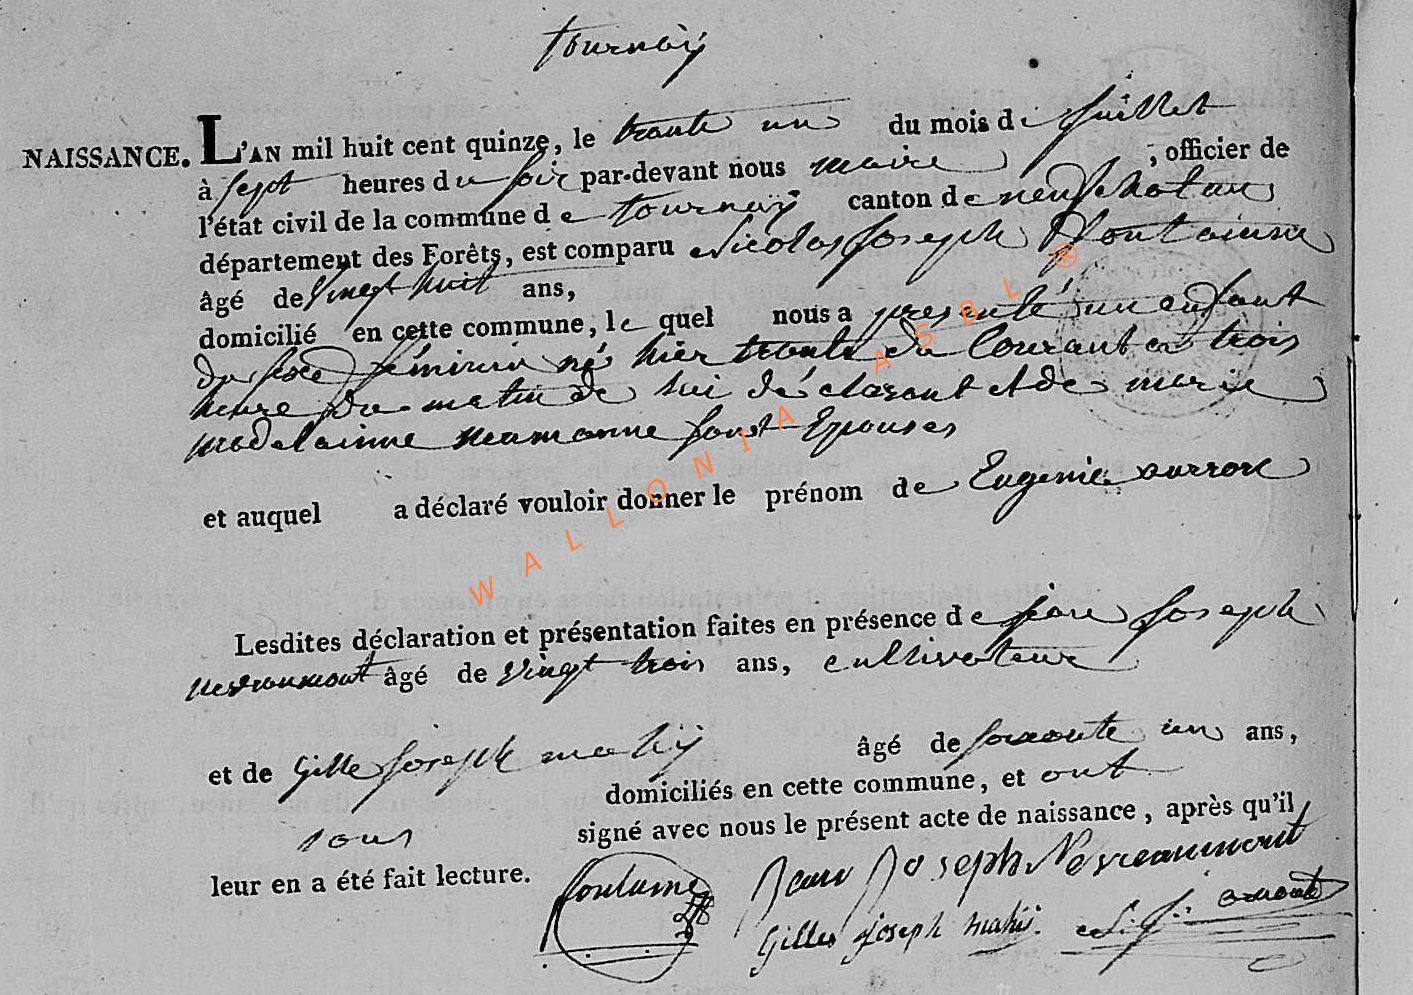 tournaÿ
NAISSANCE. L'AN mil huit cent quinze, le trante un du mois de Juillet
à Sept heures du soir par-devant nous maire, officier de
l'état civil de la commune de tournaÿ canton de neufchatau
département des Forêts, est comparu Nicolas Joseph
âgé de Vingt huit ans,
domicilié en cette commune, le quel nous a presenté un enfant
du sexe féminin né hier trante du Courant a trois
heure du matin de lui déclarant et de marie
madelainne sont Epouses
et auquel a déclaré vouloir donner le prénom de Eugenie aurrore
Lesdites déclaration et présentation faites en présence de jean Joseph
âgé de vingt trois ans, cultivateur
et de Gille joseph mahÿ âgé de soixante un ans,
domiciliés en cette commune, et ont
tous signé avec nous le présent acte de naissance, après qu'il
leur en a été fait lecture.
Jean Joseph
Gilles joseph mahÿ
WALLONIA ASBL ®